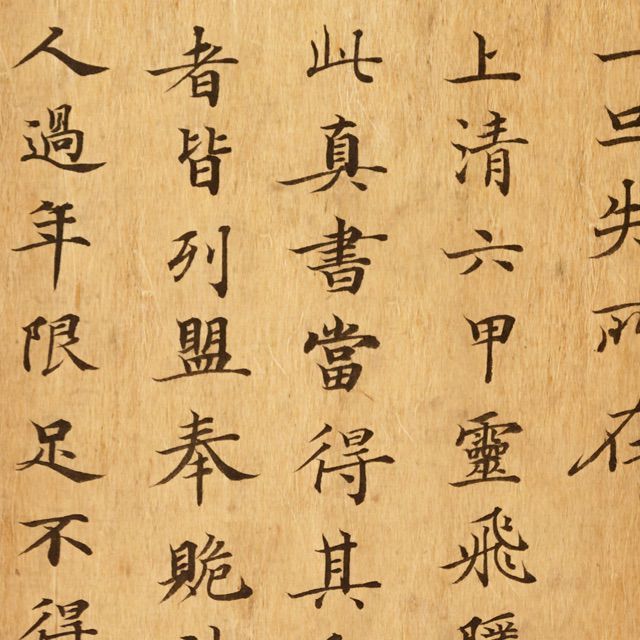 一旦失所在
上清六甲靈飛隱
此真書當得其
者皆列盟奉
人過年限足不得